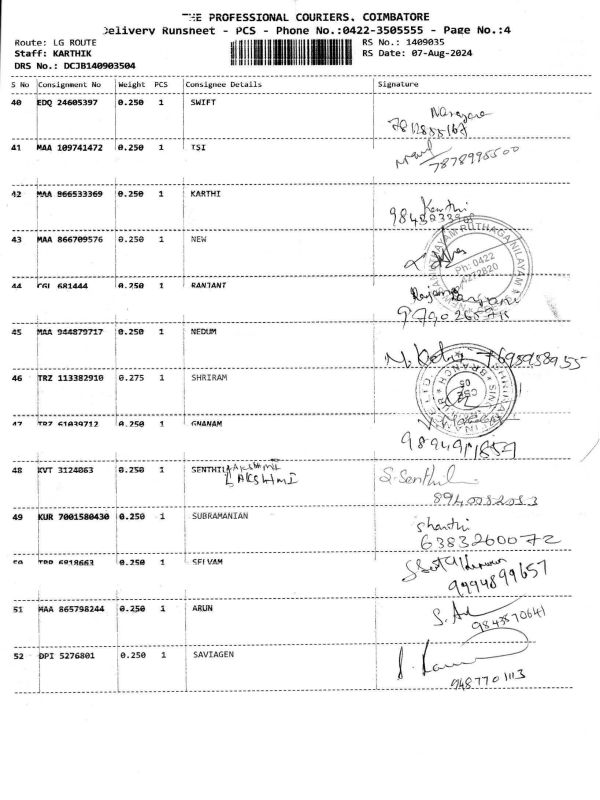 THE PROFESSIONAL COURIERS. COIMBATORE
Delivery Runsheet - PCS - Phone No.:0422-3505555 - Page No.:4
Route: LG ROUTE
RS No.: 1409035
Staff: KARTHIK
RS Date: 07-Aug-2024
DRS No.: DCJB140903504
S No Consignment No Weight PCS Consignee Details Signature
40 EDQ 24605397 0.250 1 SWIFT
Narayana
41 MAA 109741472 0.250 1 TSI
7878995500
42 MAA 866533369 0.250 1 KARTHI
Karthi
43 MAA 866709576 0.250 1 NEW
Ph: 0422
44 CGL 681444 0.250 1 RANJANI
45 MAA 944879717 0.250 1 NEDUM
7695958955
46 TRZ 113382910 0.275 1 SHRIRAM
BRANCH
47 TRZ 61039712 0.250 1 GNANAM
48 KVT 3124063 0.250 1 SENTHIL LAKSHMI
LAKSHMI
S. Senthil
49 KUR 7001580430 0.250 1 SUBRAMANIAN
Shanthi
6383260072
50 TRP 6818663 0.250 1 SELVAM
9994899657
51 MAA 865798244 0.250 1 ARUN
9843570641
52 DPI 5276801 0.250 1 SAVIAGEN
9487701113